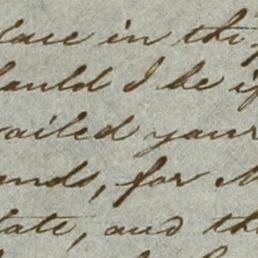 lace in this
hould I be if
vailed your
ands, for M
tate, and th